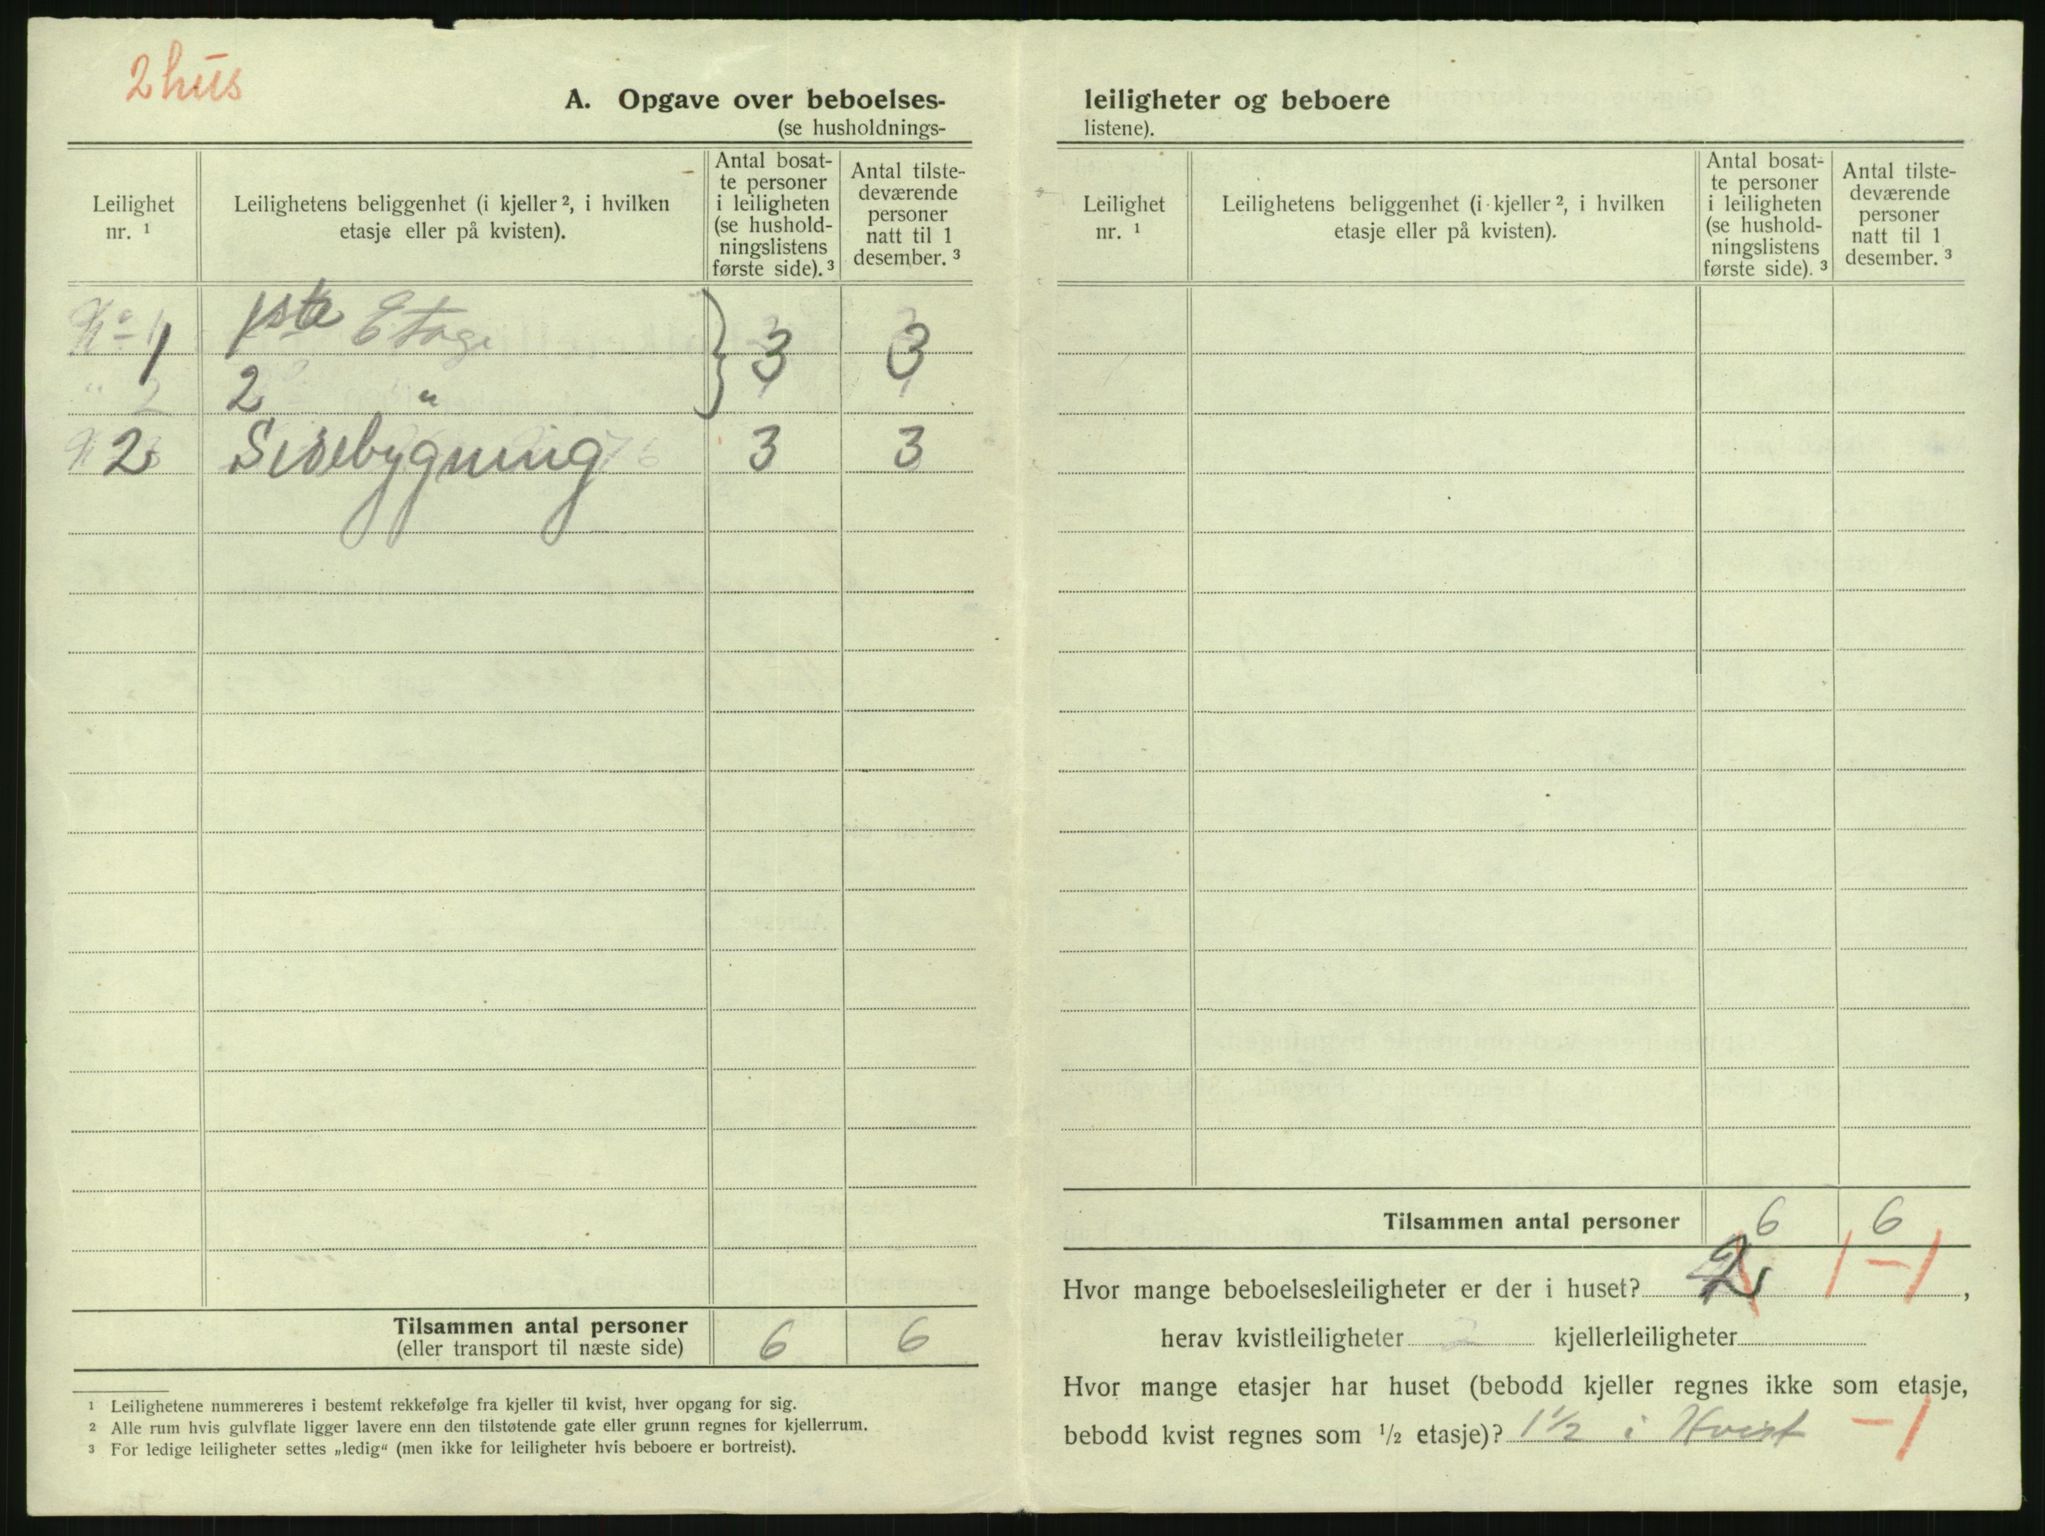 2 hus
A. Opgave over beboelses-
(se husholdnings-
Leilighet
nr. ¹
Leilighetens beliggenhet (i kjeller ², i hvilken
etasje eller på kvisten).
Antal bosat-
te personer
i leiligheten
(se hushold-
ningslistens
første side). ³
Antal tilste-
deværende
personer
natt til 1
desember. ³
1 1ste Etage 3 3
2 "
2 Sidebygning 3 3
Tilsammen antal personer
(eller transport til næste side) 6 6
¹ Leilighetene nummereres i bestemt rekkefølge fra kjeller til kvist, hver opgang for sig.
² Alle rum hvis gulvflate ligger lavere enn den tilstøtende gate eller grunn regnes for kjellerrum.
³ For ledige leiligheter settes „ledig“ (men ikke for leiligheter hvis beboere er bortreist).
leiligheter og beboere
listene).
Leilighet
nr. ¹
Leilighetens beliggenhet (i kjeller ², i hvilken
etasje eller på kvisten).
Antal bosat-
te personer
i leiligheten
(se hushold-
ningslistens
første side). ³
Antal tilste-
deværende
personer
natt til 1
desember. ³
Tilsammen antal personer 6 6
Hvor mange beboelsesleiligheter er der i huset? 2 1-1,
herav kvistleiligheter 2 kjellerleiligheter
Hvor mange etasjer har huset (bebodd kjeller regnes ikke som etasje,
bebodd kvist regnes som ½ etasje)? 1½ i Kvist -1